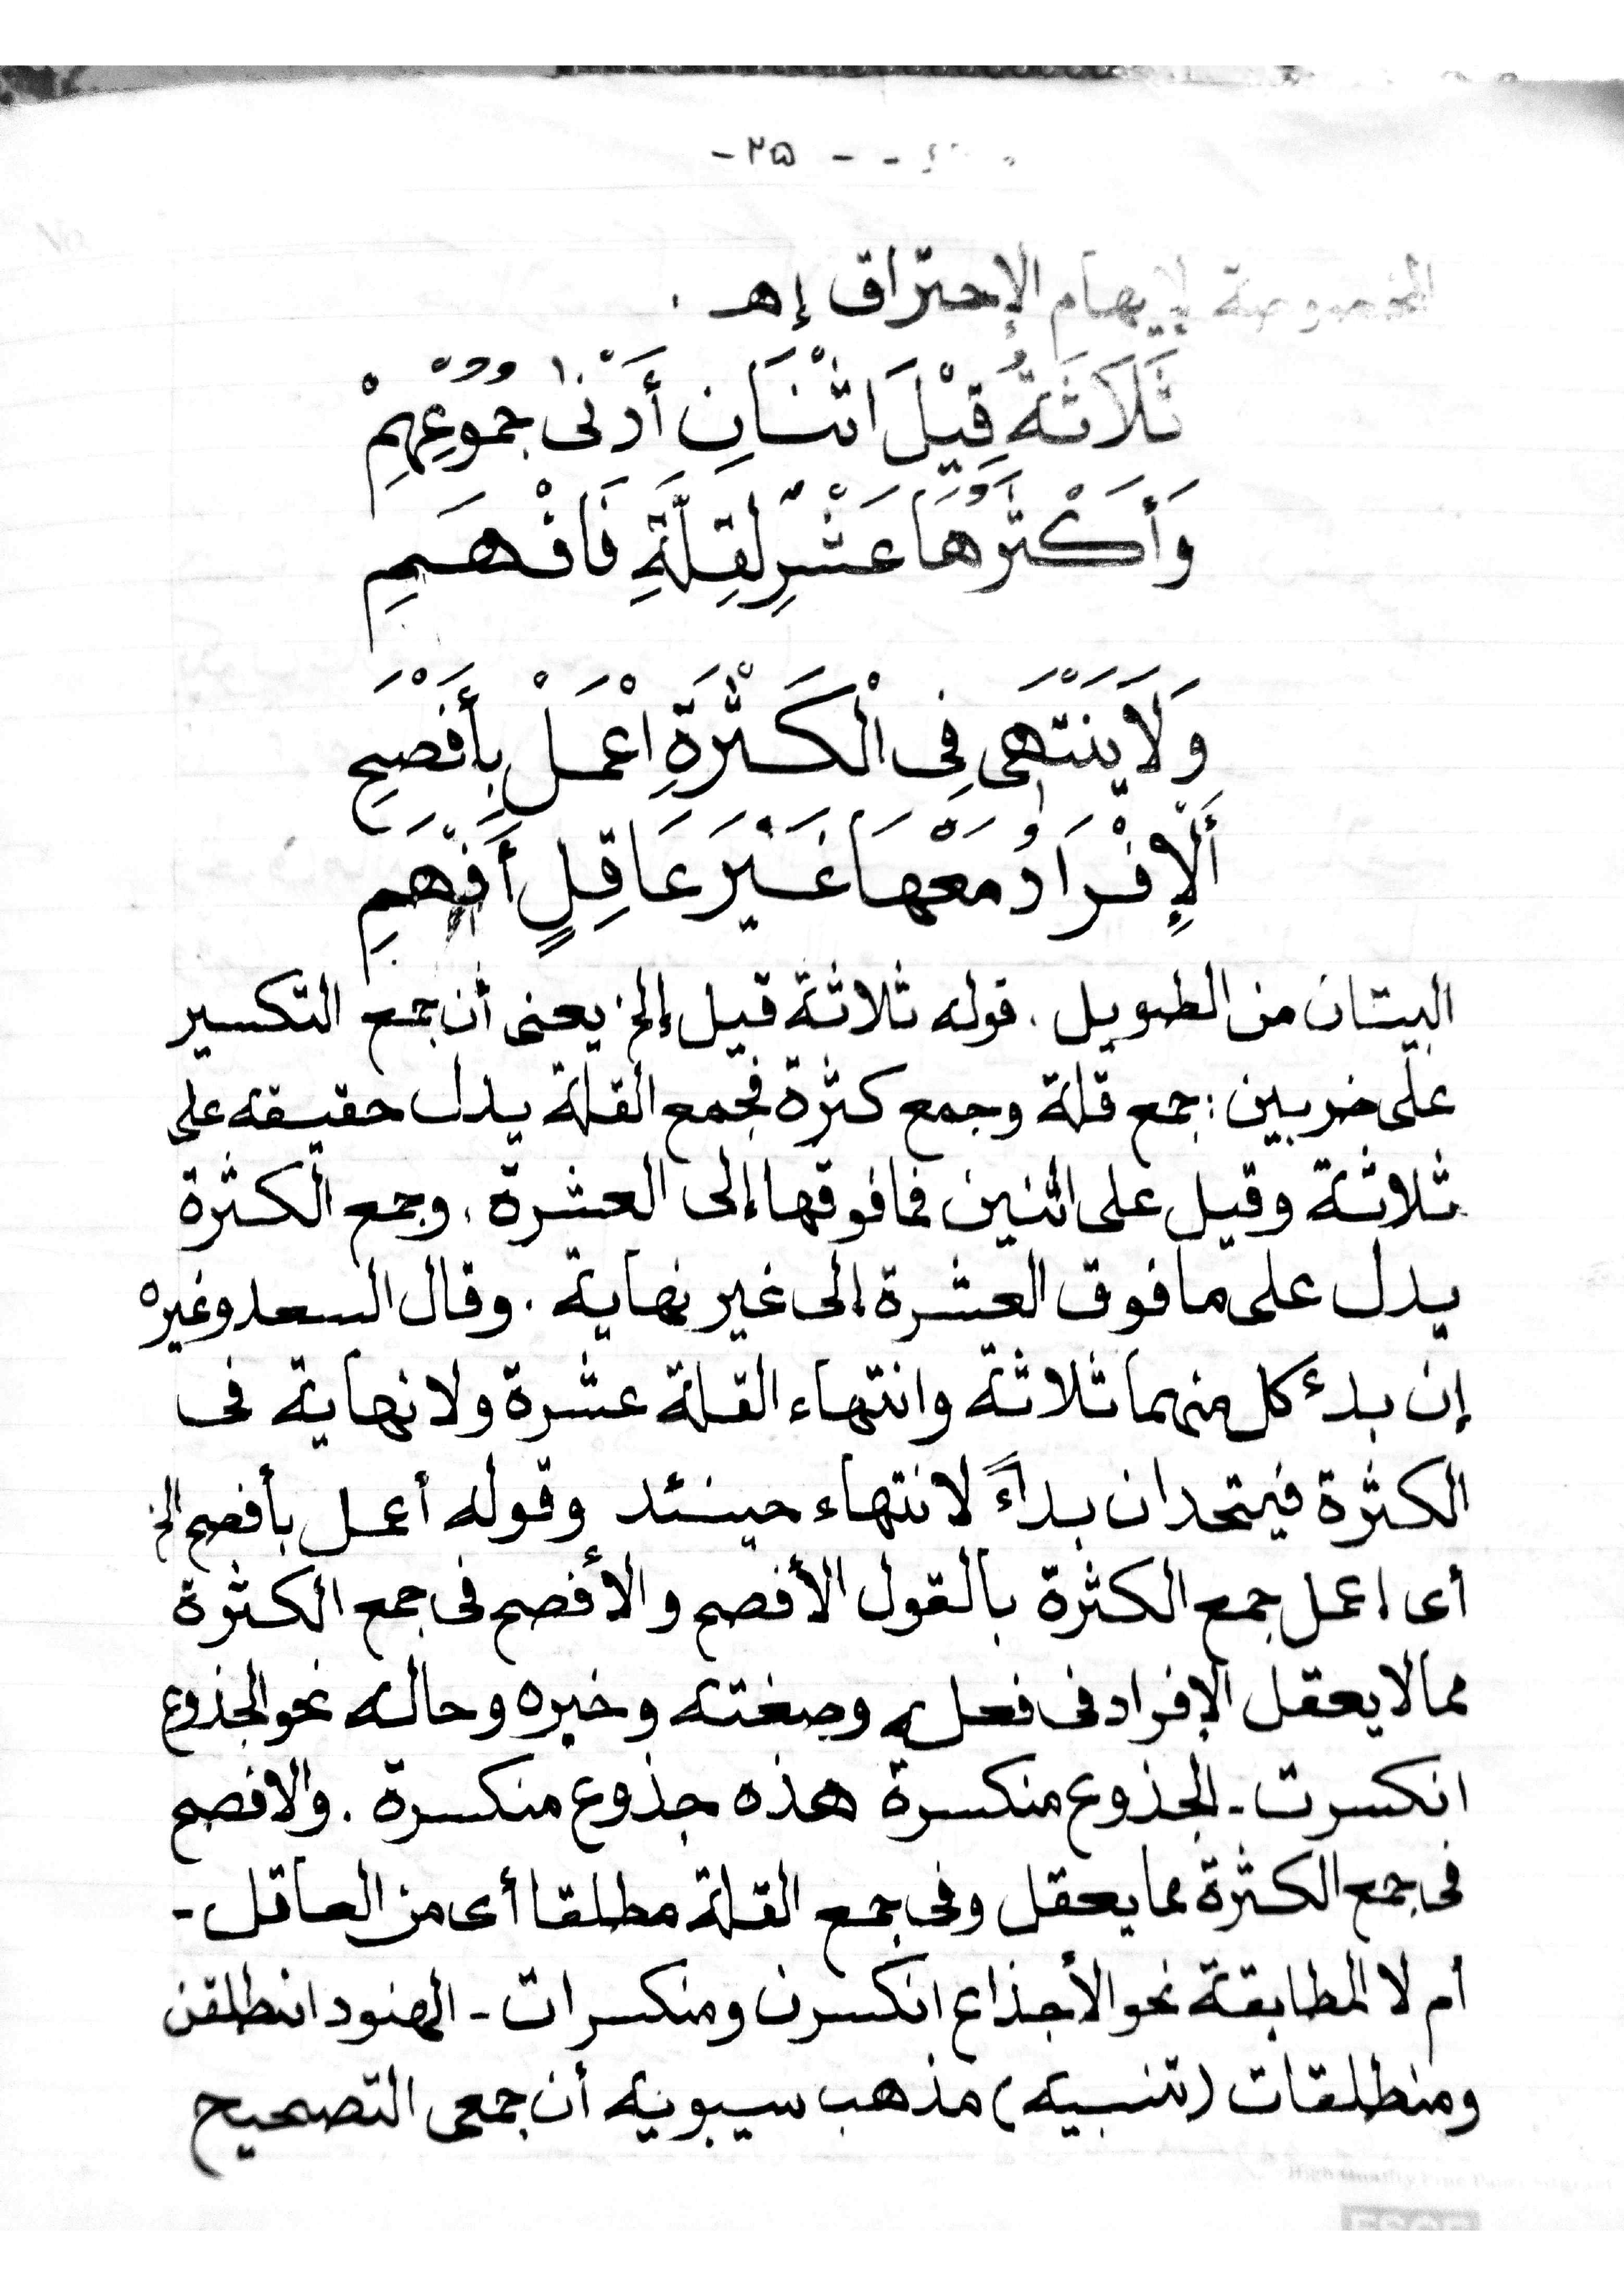 -٢٥-
المخصوصة لإيهام الإحتراق إهـ .
ثَلَاثَةُ قِيْلَ اثْنَانِ أَدْنٰى جُمُوْعِهِمْ
وَأَكْثَرُهَا عَشْرٌ لِقِلَّةِ فَافْهَمِ
وَلَا يَنْتَهَى فِى الْكَثْرَةِ اعْمَلْ بِأَفْصَحِ
أَلْإِفْرَادُ مَعْهَا غَيْرَ عَاقِلٍ أَفْهَمِ
البيتان من الطويل . قوله ثلاثة قيل إلخ يعنى أن جمع التكسير
على ضربين : جمع قلة وجمع كثرة فجمع القلة يدل حقيقه على
ثلاثة وقيل على اثنين فما فوقها إلى العشرة . وجمع الكثرة
يدل على ما فوق العشرة إلى غير نهاية . وقال السعد وغيره
إن بدء كل منهما ثلاثة وانتهاء القلة عشرة ولا نهاية فى
الكثرة فيتحدان بداءً لا انتهاء حينئد وقوله أعمل بأفصح إلخ
أى اعمل جمع الكثرة بالقول الأفصح والأفصح فى جمع الكثرة
مما لا يعقل الإفراد فى فعله وصغته وخبره وحاله نحو الجذوع
انكسرت - الجذوع منكسرة هذه جذوع منكسرة . والافصح
فى جمع الكثرة مما يعقل وفى جمع القلة مطلقا أى من العاقل -
أم لا المطابقة نحو الأجذاع انكسرن ومنكسرات - الهنود انطلقن
ومنطلقات (تنبيه) مذهب سيبويه أن جمعى التصحيح